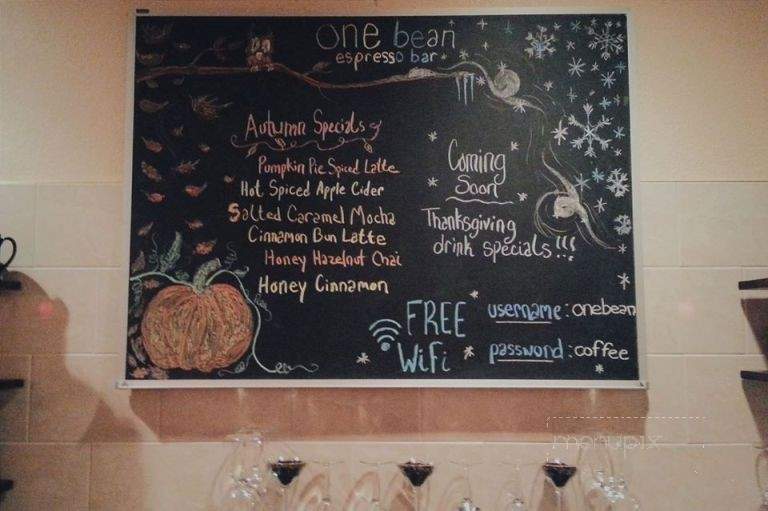 one bean
espresso bar
Autumn Specials
Pumpkin Pie Spiced Latte
Hot Spiced Apple Cider
Salted Caramel Mocha
Cinnamon Bun Latte
Honey Hazelnut Chai
Honey Cinnamon
Coming
Soon
Thanksgiving
drink specials!!!
FREE
WiFi
username: onebean
password: coffee
menupix